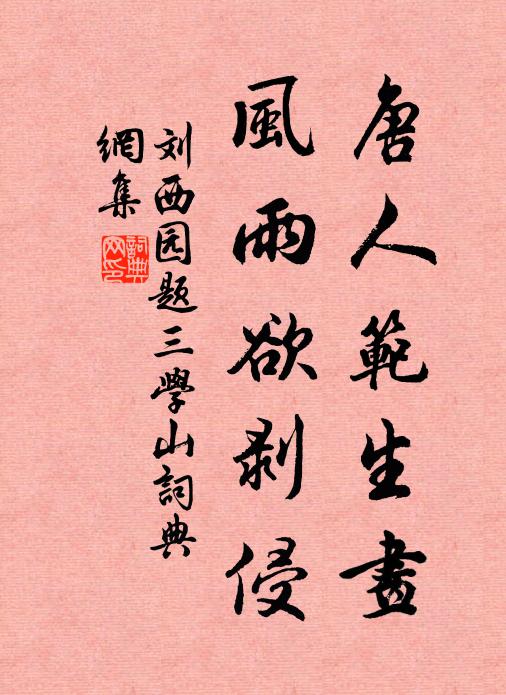 唐人範生畫
風雨欲剥侵
刘西园题三學山詞典
網集
詞典网印